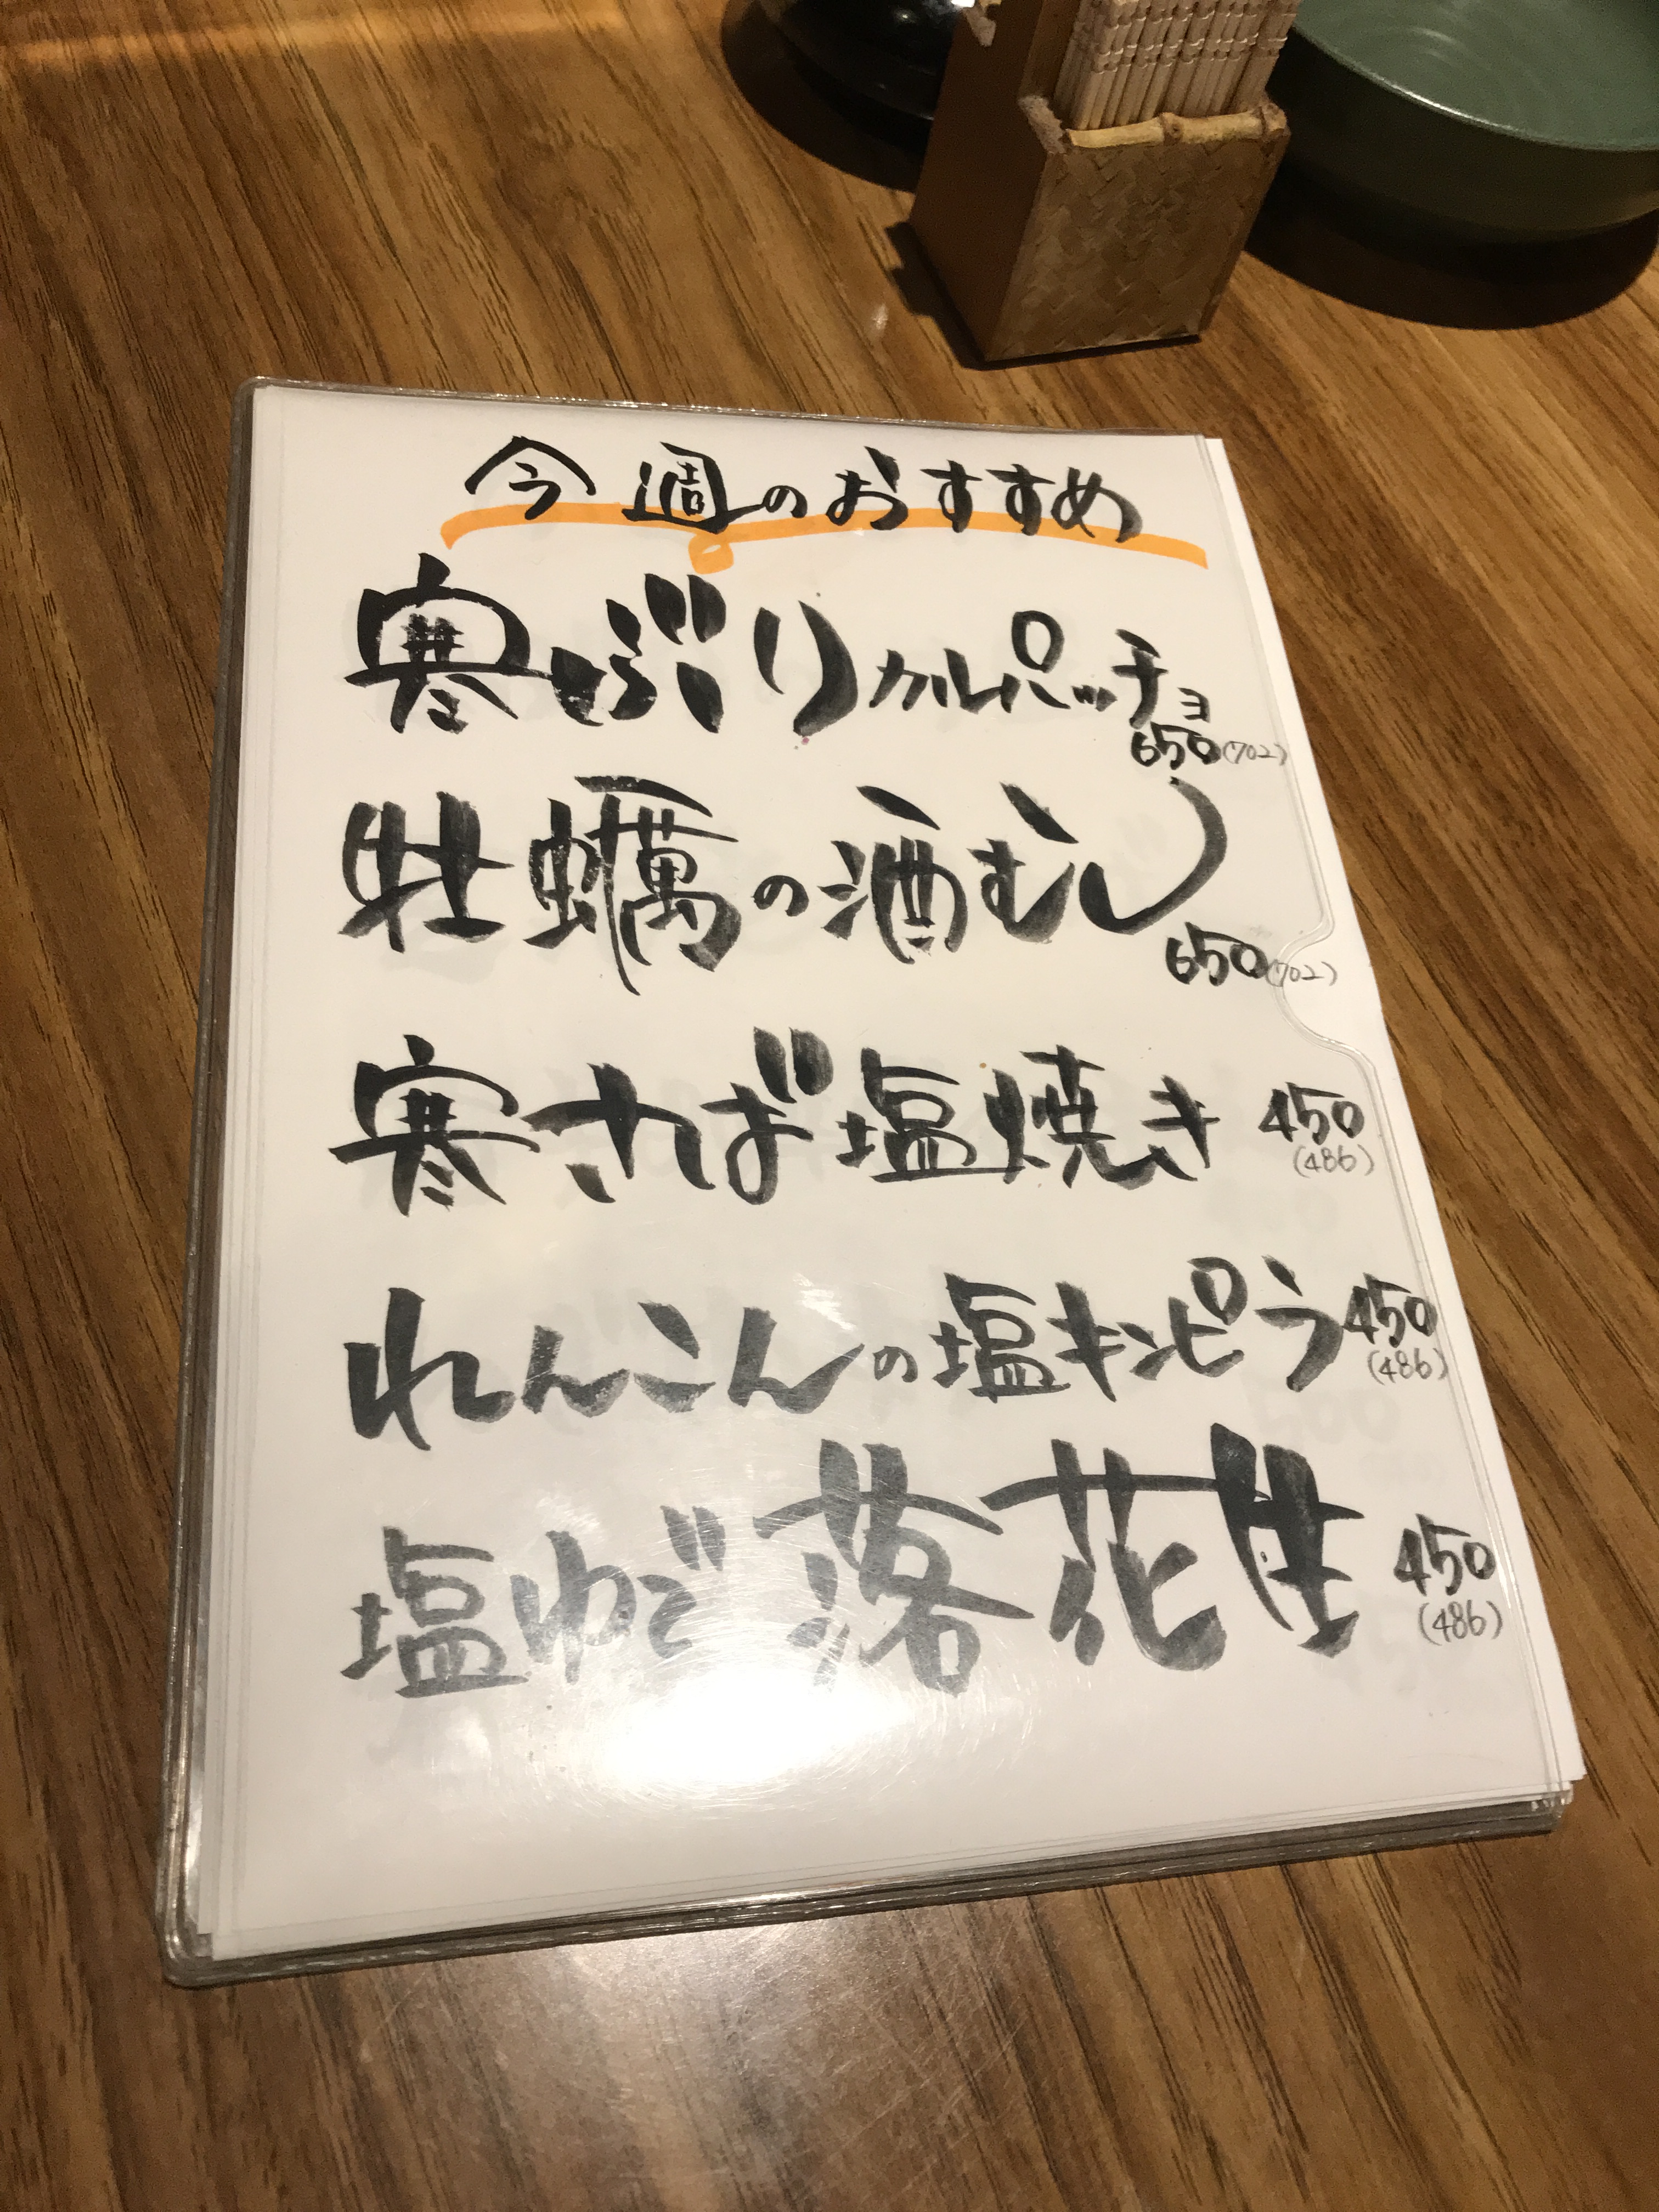 今週のおすすめ
寒ぶりカルパッチョ
650(702)
牡蠣の酒むし
650(702)
寒さば塩焼き 450
(486)
れんこんの塩キンピラ 450
(486)
塩ゆで落花生 450
(486)